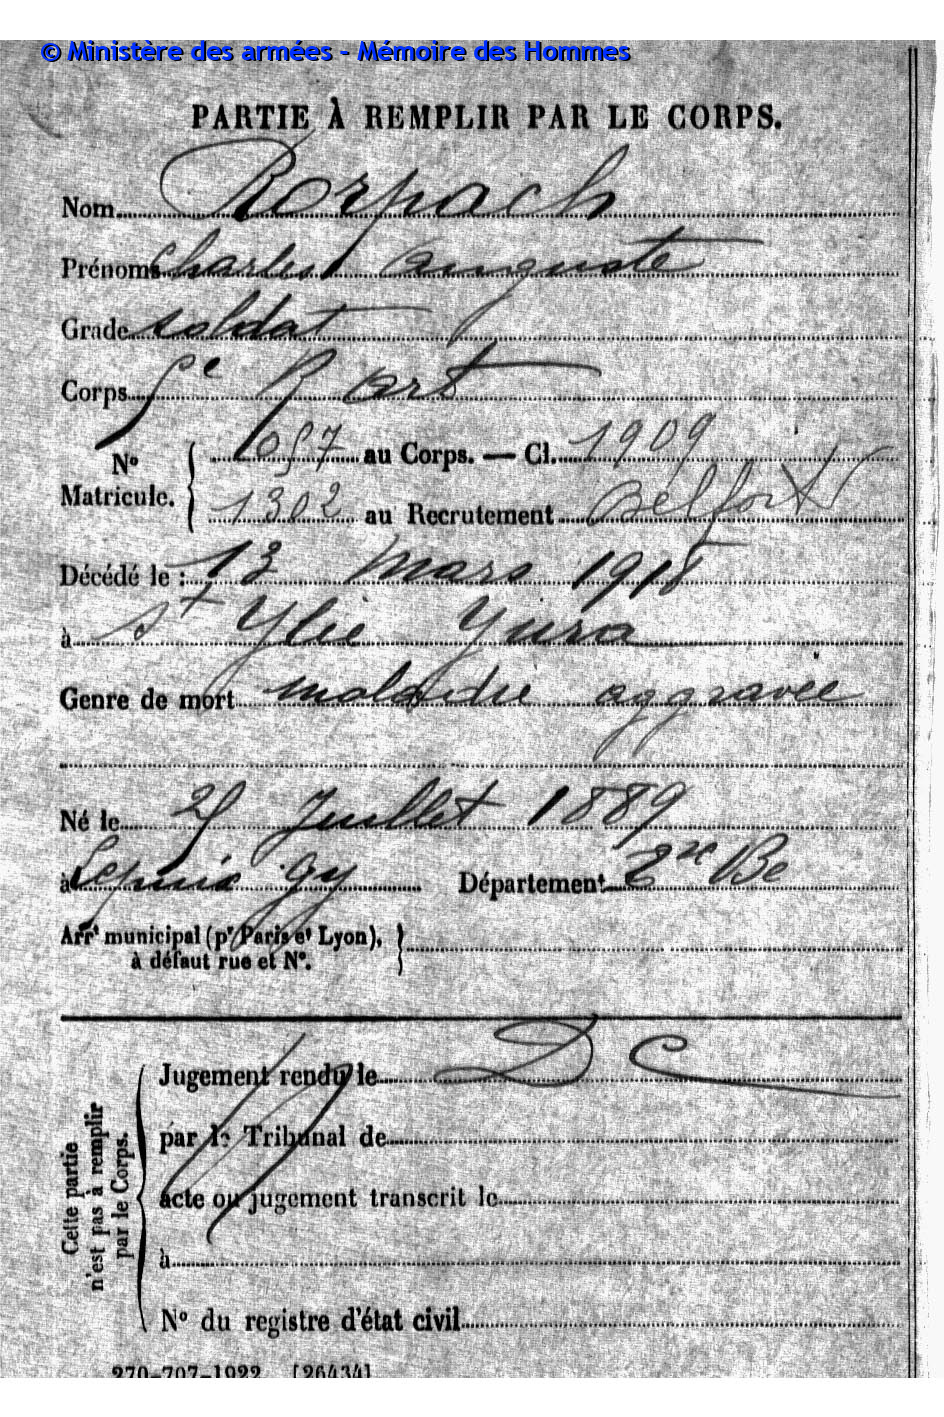 © Ministère des armées - Mémoire des Hommes
PARTIE À REMPLIR PAR LE CORPS.
Nom Rorpach
Prénoms Charles Auguste
Grade soldat
Corps 5e R art
No Matricule. 1057 au Corps. — Cl. 1909
1302 au Recrutement Belfort
Décédé le : 13 mars 1918
à St Ylie Jura
Genre de mort maladie aggravée
Né le 25 Juillet 1889
à Lepuis gy Département
Arrt municipal (pr Paris et Lyon),
à défaut rue et No.
Cette partie
n'est pas à remplir
par le Corps.
Jugement rendu le
par le Tribunal de
acte ou jugement transcrit le
à
No du registre d'état civil
270-707-1922. [26434]